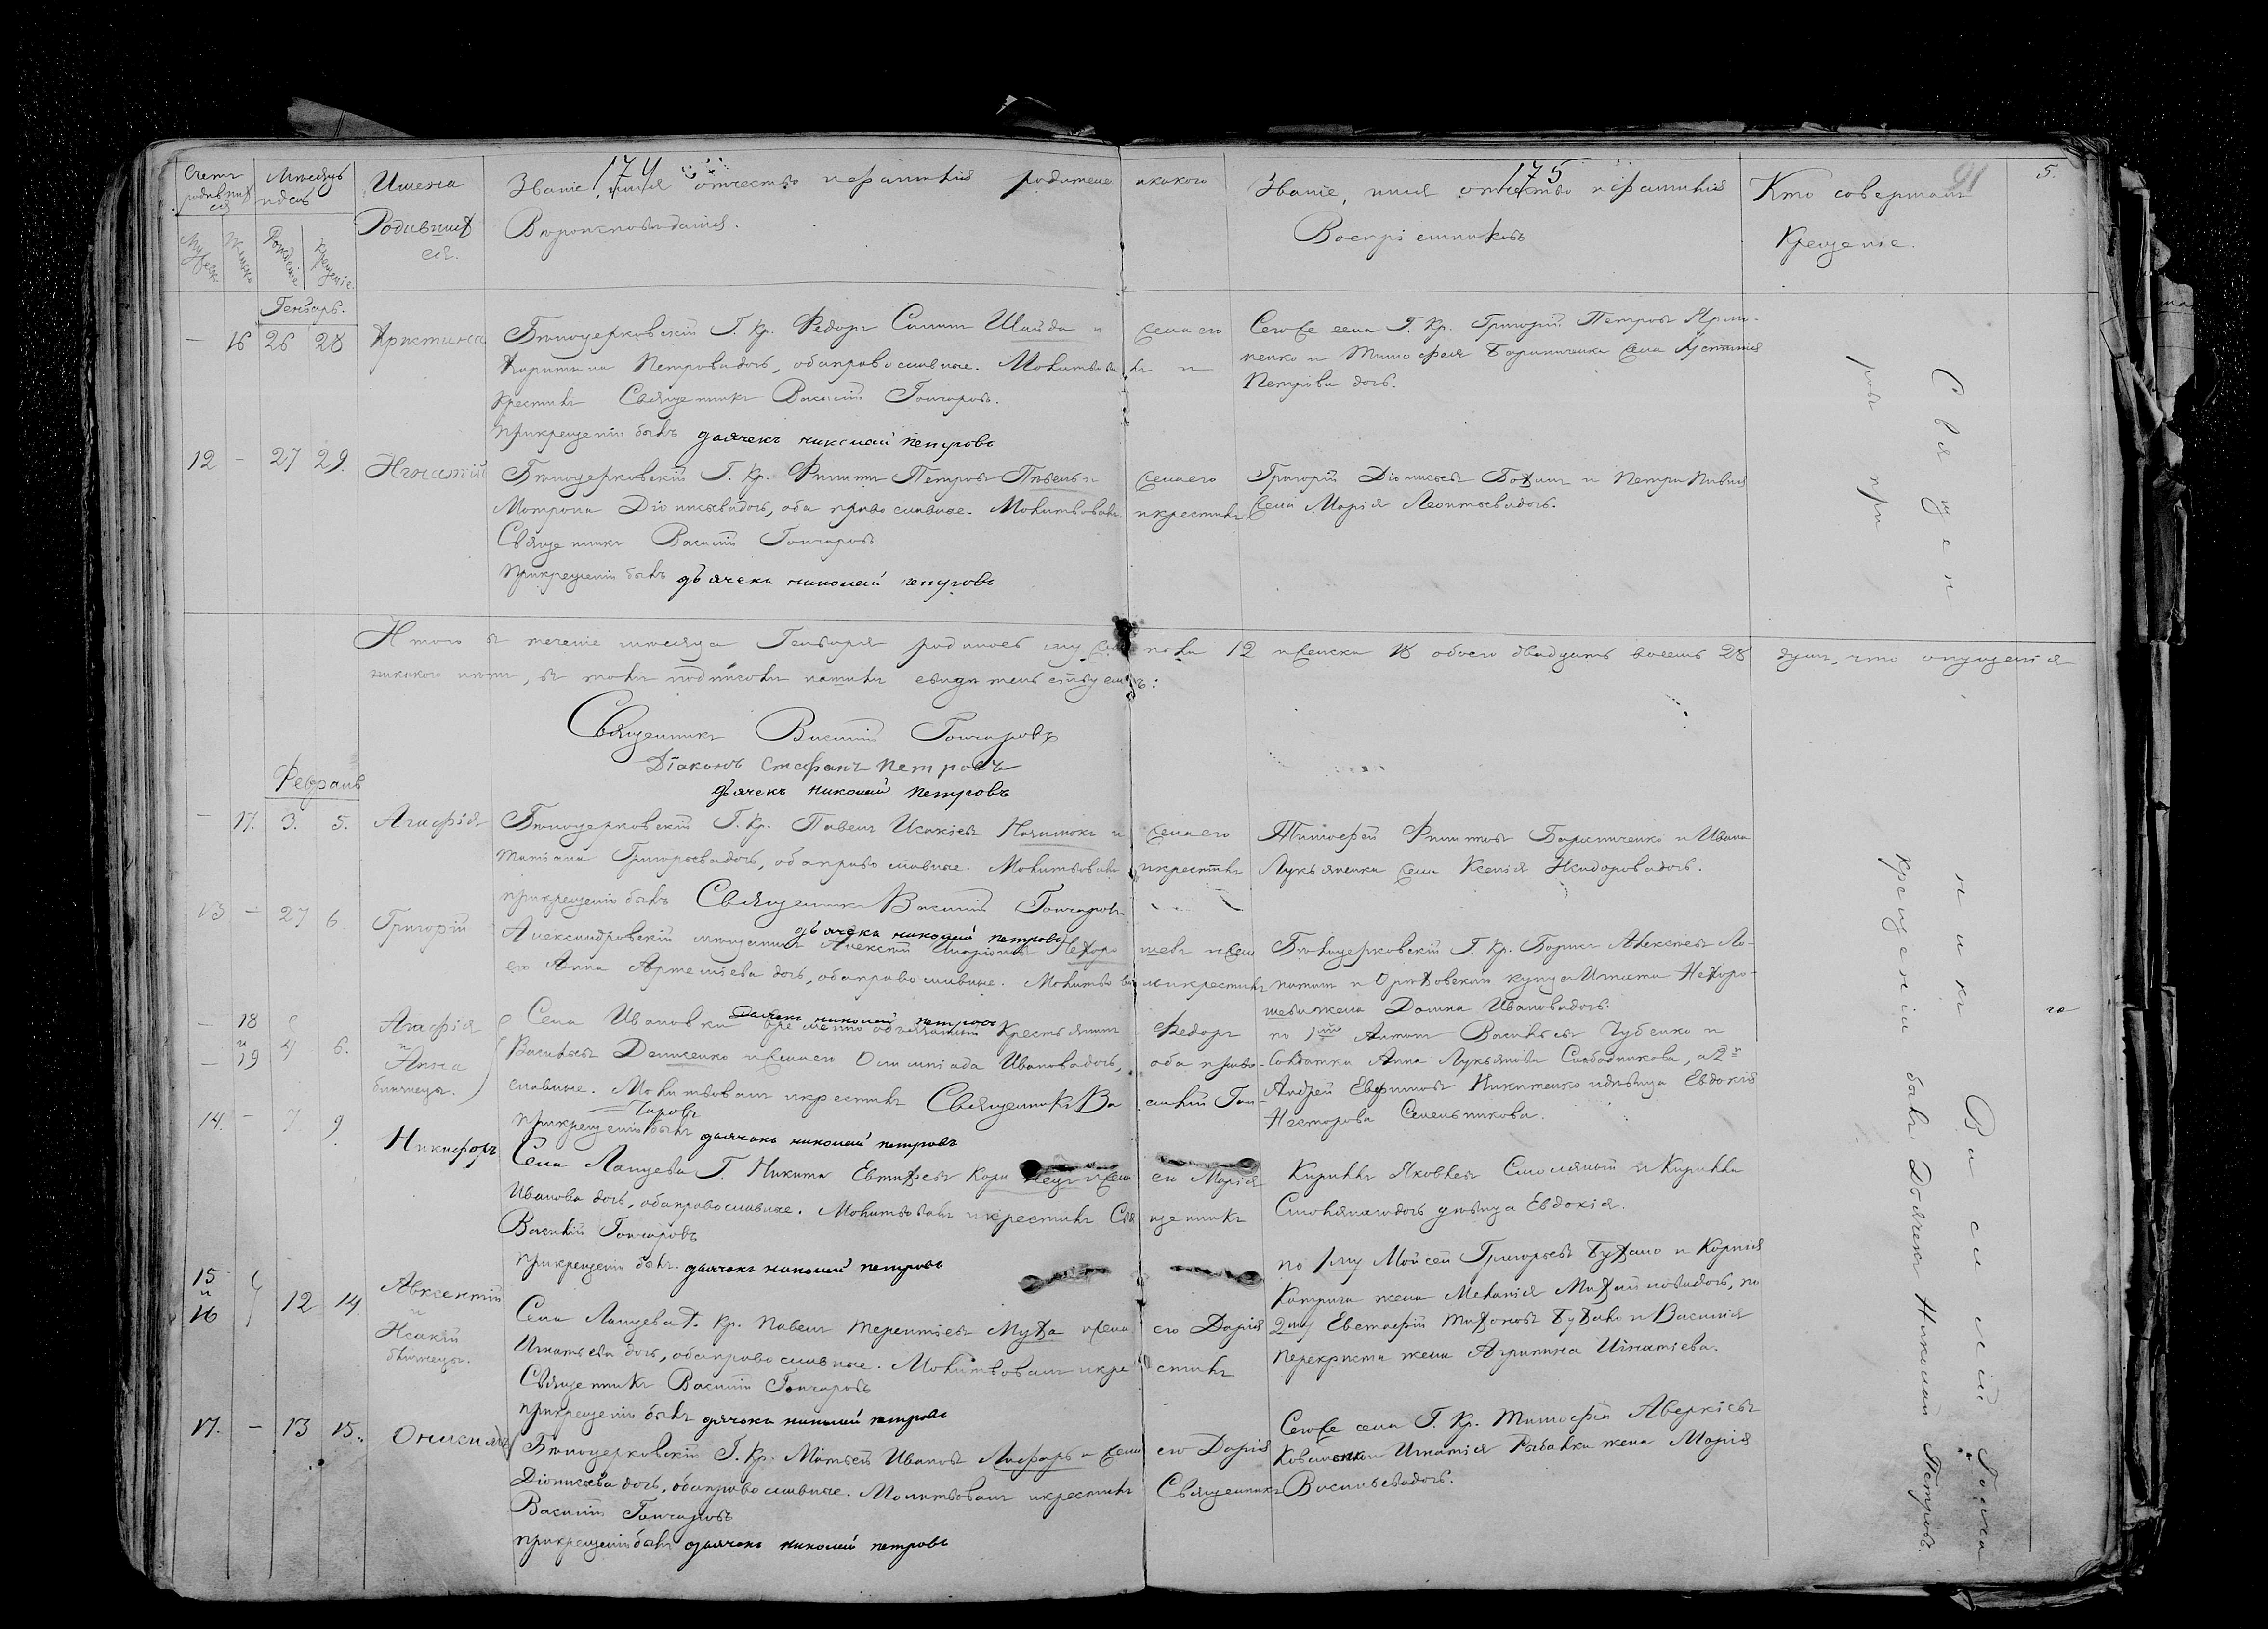 174
175
5.
Счетъ родившихся
Мѣсяцъ и день
Имена Родившихся.
Званіе, имя отчество и фамилія родителей и какого Вѣроисповѣданія.
Званіе, имя отчество и фамилія Воспріемниковъ
Кто совершалъ Крещеніе.
Мужеск.
Женск.
Рожденіе
Крещеніе
Генварь.
— 16 26 28 Христина
Бѣлоцерковскій Г. Кр. Федоръ Шайда и жена его
Харитина Петрова дочь, оба православные. Молитвовалъ и
крестилъ Священникъ Василій Гончаровъ.
при крещеніи былъ дьячекъ николай петровъ
Сегоже села Г. Кр. Григорій Петровъ
и Тимофея жена Устинія
Петрова дочь.
12 — 27 29. Игнатій
Бѣлоцерковскій Г. Кр. Филиппъ Петровъ Пивень и жена его
Мотрона Діонисьева дочь, оба православные. Молитвовалъ и крестилъ
Священникъ Василій Гончаровъ
при крещеніи былъ дьячекъ николай петровъ
Григорій Діонисьевъ и Петра Пивня
жена Марія Леонтьева дочь.
Итого въ теченіе мѣсяца Генваря родилось мужеска пола 12 и женска 16 обоего двадцать восемь 28 душъ, что опущенія
никакого нѣтъ, въ томъ подписомъ нашимъ свидетельствуемъ:
Священникъ Василій Гончаровъ
Діаконъ Стефанъ Петровъ
дьячекъ николай петровъ
Февраль
— 17. 3. 5. Агафія
Бѣлоцерковскій Г. Кр. Павелъ Исакіевъ и жена его
Татіана Григорьева дочь, оба православные. Молитвовалъ и крестилъ
при крещеніи былъ Священникъ Василій Гончаровъ
дьячекъ николай петровъ
Тимофей Филиповъ и Ивана
Лукьяненка жена Ксенія Исидорова дочь.
13 — 27 6 Григорій
Александровскій мѣщанинъ Алексѣй Нехорошевъ и жена
его Анна Артемьева дочь, оба православные. Молитвовалъ и крестилъ
дьячекъ николай петровъ
Бѣлоцерковскій Г. Кр. Борисъ Алексѣевъ
и Орѣховскаго купца Игната Нехоро-
шева жена Домна Иванова дочь.
— 18 и — 19 4 6. Агафія и Анна близнецы.
Села Ивановки временно обязанный Крестьянинъ Федоръ
Васильевъ Денисенко и жена его Олимпіада Иванова дочь, оба право-
славные. Молитвовалъ и крестилъ Священникъ Василій Гон-
чаровъ
при крещеніи былъ дьячекъ николай петровъ
по 1й Антонъ Васильевъ Губенко и
Солдатка Анна Лукьянова Слободчикова, а 2й
Андрей Евфимовъ Никитенко и дѣвица Евдокія
Нестерова Семельникова.
14. — 7 9 Никифоръ
Села Ланцева Г. Никита Евтихіевъ и жена его Марія
Иванова дочь, оба православные. Молитвовалъ и крестилъ Священникъ
Василій Гончаровъ
при крещеніи былъ дьячекъ николай петровъ
Кириллъ Яковлевъ Смоляный и Кирилла
Смолянаго дочь дѣвица Евдокія.
15 и 16 12 14. Авксентій и Исакій близнецы.
Села Ланцева Г. Кр. Павелъ Терентіевъ Муха и жена его Дарія
Игнатьева дочь, оба православные. Молитвовалъ и крестилъ
Священникъ Василій Гончаровъ
при крещеніи былъ дьячекъ николай петровъ
по 1му Мойсей Григорьевъ и Корнія
жена Меланія Михайлова дочь, по
2му Евстафій и Василія
Перекриста жена Агрипина Игнатіева.
17. — 13 15. Онисимъ
Бѣлоцерковскій Г. Кр. Матвей Ивановъ и жена его Дарія
Діонисьева дочь, оба православные. Молитвовалъ и крестилъ Священникъ
Василій Гончаровъ
при крещеніи былъ дьячекъ николай петровъ
Сегоже села Г. Кр. Тимофій Аверкіевъ
и Игнатія Рыбалка жена Марія
Васильева дочь.
Священникъ Василій Гонча
ровъ при крещеніи былъ Дьячекъ Николай Петровъ.